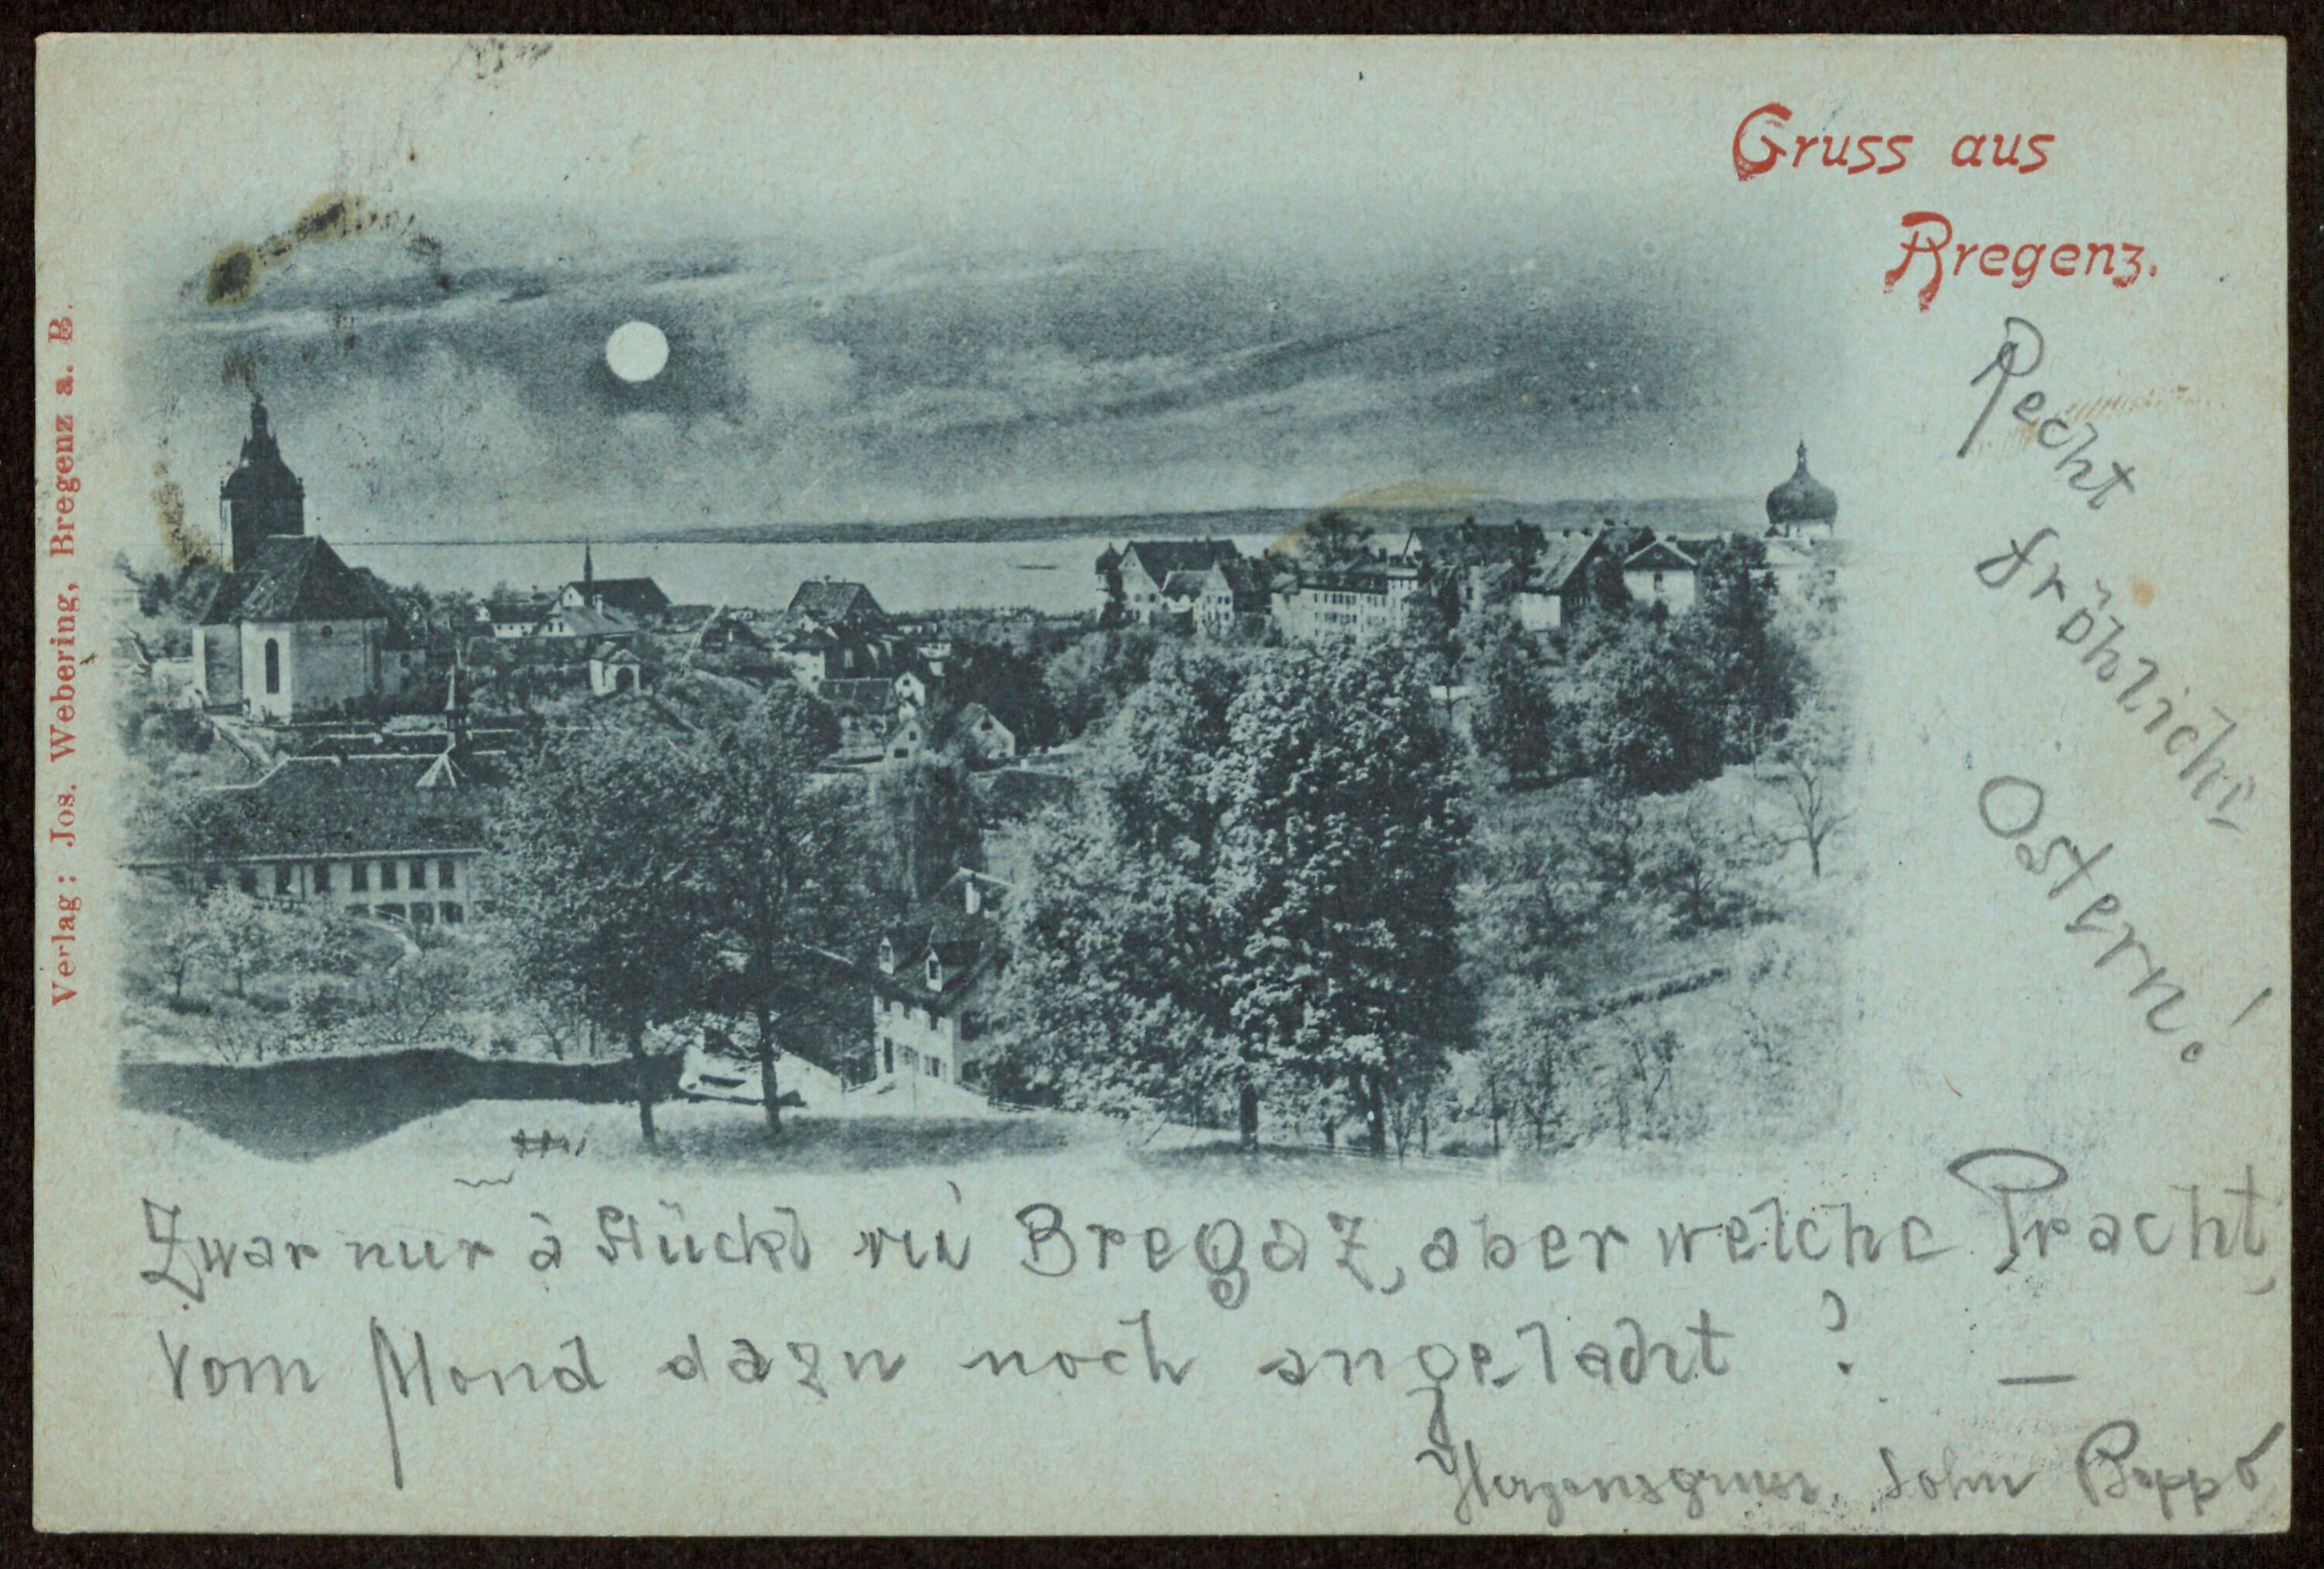 Gruss aus
Bregenz.
Verlag: Jos. Webering, Bregenz a. B.
Recht
fröhliche
Ostern!
Zwar nur à Stückl vu Bregaz, aber welche Pracht,
vom Mond dazu noch angelacht? —
Herzensgruss, Sohn Beppo